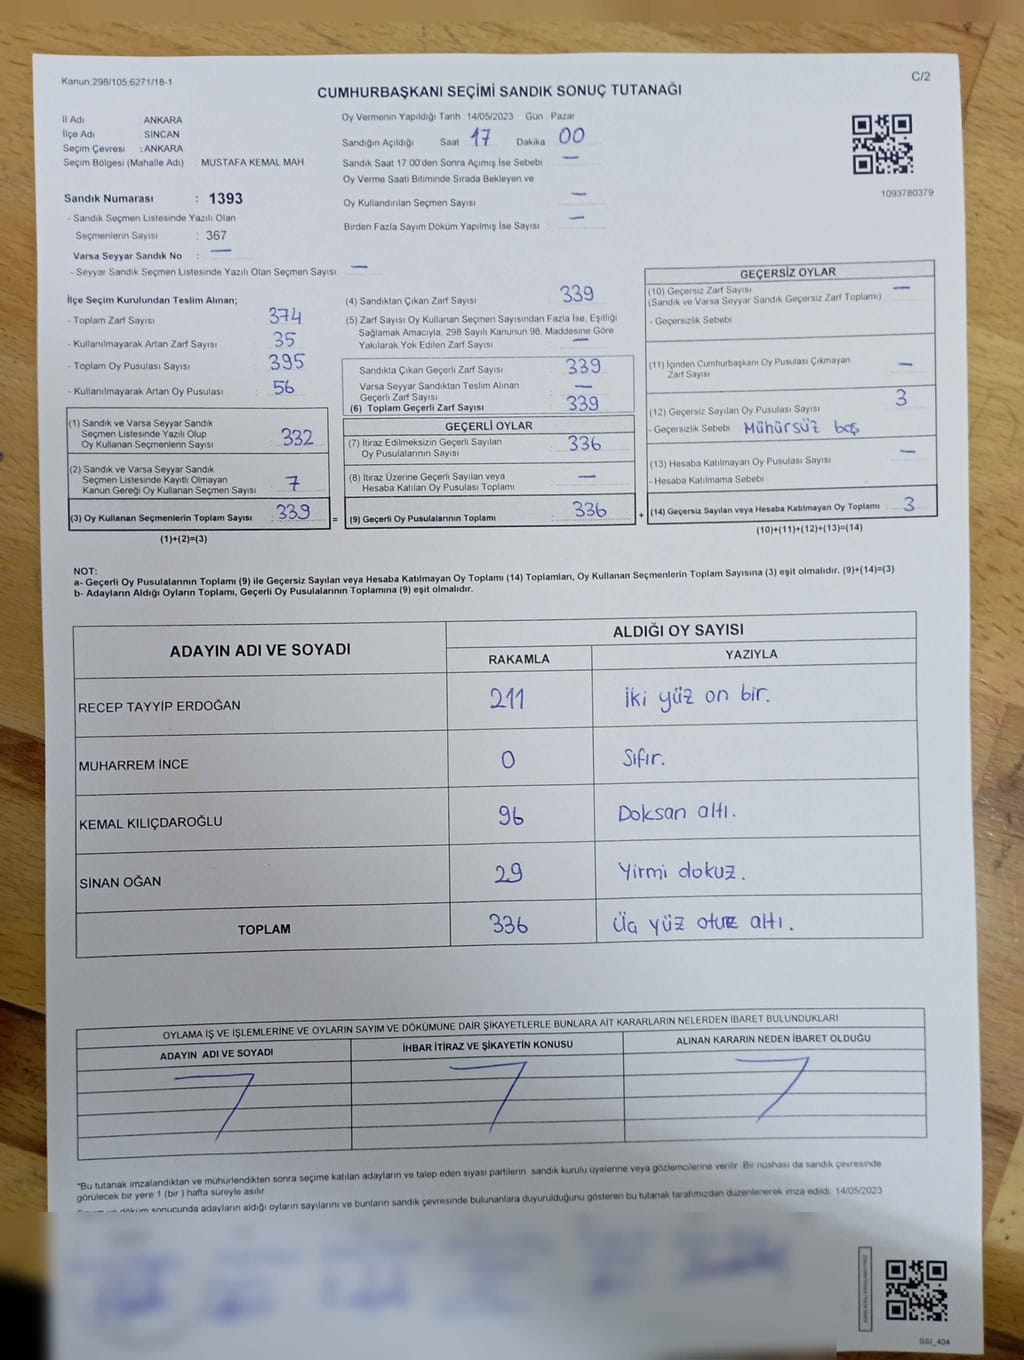 Kanun:298/105,6271/18-1
C/2
CUMHURBAŞKANI SEÇİMİ SANDIK SONUÇ TUTANAĞI
İl Adı ANKARA
İlçe Adı SİNCAN
Seçim Çevresi : ANKARA
Seçim Bölgesi (Mahalle Adı) : MUSTAFA KEMAL MAH
Oy Vermenin Yapıldığı Tarih 14/05/2023 Gün Pazar
Sandığın Açıldığı Saat 17 Dakika 00
Sandık Saat 17 00'den Sonra Açımış İse Sebebi —
Oy Verme Saati Bitiminde Sırada Bekleyen ve
Oy Kullandırılan Seçmen Sayısı —
Birden Fazla Sayım Döküm Yapılmış İse Sayısı —
1093780379
Sandık Numarası : 1393
- Sandık Seçmen Listesinde Yazılı Olan
Seçmenlerin Sayısı : 367
Varsa Seyyar Sandık No : —
- Seyyar Sandık Seçmen Listesinde Yazılı Olan Seçmen Sayısı —
İlçe Seçim Kurulundan Teslim Alınan;
- Toplam Zarf Sayısı 374
- Kullanılmayarak Artan Zarf Sayısı 35
- Toplam Oy Pusulası Sayısı 395
- Kullanılmayarak Artan Oy Pusulası 56
(1) Sandık ve Varsa Seyyar Sandık
Seçmen Listesinde Yazılı Olup
Oy Kullanan Seçmenlerin Sayısı 332
(2) Sandık ve Varsa Seyyar Sandık
Seçmen Listesinde Kayıtlı Olmayan
Kanun Gereği Oy Kullanan Seçmen Sayısı 7
(3) Oy Kullanan Seçmenlerin Toplam Sayısı 339
(1)+(2)=(3)
=
(4) Sandıktan Çıkan Zarf Sayısı 339
(5) Zarf Sayısı Oy Kullanan Seçmen Sayısından Fazla İse, Eşitliği
Sağlamak Amacıyla, 298 Sayılı Kanunun 98. Maddesine Göre
Yakılarak Yok Edilen Zarf Sayısı —
Sandıkta Çıkan Geçerli Zarf Sayısı 339
Varsa Seyyar Sandıktan Teslim Alınan
Geçerli Zarf Sayısı —
(6) Toplam Geçerli Zarf Sayısı 339
GEÇERLİ OYLAR
(7) İtiraz Edilmeksizin Geçerli Sayılan
Oy Pusulalarının Sayısı 336
(8) İtiraz Üzerine Geçerli Sayılan veya
Hesaba Katılan Oy Pusulası Toplamı —
(9) Geçerli Oy Pusulalarının Toplamı 336
+
GEÇERSİZ OYLAR
(10) Geçersiz Zarf Sayısı
(Sandık ve Varsa Seyyar Sandık Geçersiz Zarf Toplamı) —
- Geçersizlik Sebebi
(11) İçinden Cumhurbaşkanı Oy Pusulası Çıkmayan
Zarf Sayısı —
(12) Geçersiz Sayılan Oy Pusulası Sayısı 3
- Geçersizlik Sebebi Mühürsüz boş
(13) Hesaba Katılmayan Oy Pusulası Sayısı —
- Hesaba Katılmama Sebebi
(14) Geçersiz Sayılan veya Hesaba Katılmayan Oy Toplamı 3
(10)+(11)+(12)+(13)=(14)
NOT:
a- Geçerli Oy Pusulalarının Toplamı (9) ile Geçersiz Sayılan veya Hesaba Katılmayan Oy Toplamı (14) Toplamları, Oy Kullanan Seçmenlerin Toplam Sayısına (3) eşit olmalıdır. (9)+(14)=(3)
b- Adayların Aldığı Oyların Toplamı, Geçerli Oy Pusulalarının Toplamına (9) eşit olmalıdır.
ADAYIN ADI VE SOYADI
ALDIĞI OY SAYISI
RAKAMLA YAZIYLA
RECEP TAYYİP ERDOĞAN 211 İki yüz on bir.
MUHARREM İNCE 0 Sıfır.
KEMAL KILIÇDAROĞLU 96 Doksan altı.
SİNAN OĞAN 29 Yirmi dokuz.
TOPLAM 336 Üç yüz otuz altı.
OYLAMA İŞ VE İŞLEMLERİNE VE OYLARIN SAYIM VE DÖKÜMÜNE DAİR ŞİKAYETLERLE BUNLARA AİT KARARLARIN NELERDEN İBARET BULUNDUKLARI
ADAYIN ADI VE SOYADI İHBAR İTİRAZ VE ŞİKAYETİN KONUSU ALINAN KARARIN NEDEN İBARET OLDUĞU
*Bu tutanak imzalandıktan ve mühürlendikten sonra seçime katılan adayların ve talep eden siyasi partilerin sandık kurulu üyelerine veya gözlemcilerine verilir. Bir nüshası da sandık çevresinde
görülecek bir yere 1 (bir ) hafta süreyle asılır
döküm sonucunda adayların aldığı oyların sayılarını ve bunların sandık çevresinde bulunanlara duyurulduğunu gösteren bu tutanak tarafımızdan düzenlenerek imza edildi. 14/05/2023
SSI_404